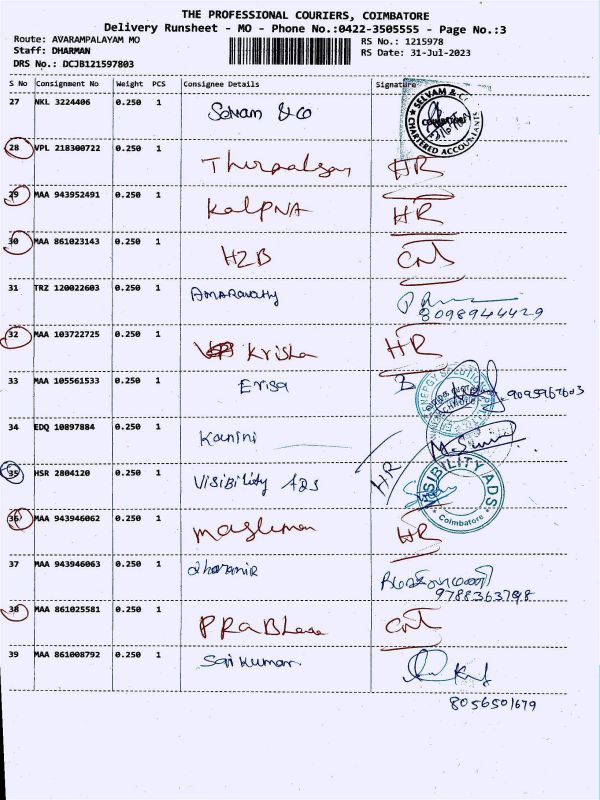 THE PROFESSIONAL COURIERS, COIMBATORE
Delivery Runsheet - MO - Phone No.:0422-3505555 - Page No.:3
Route: AVARAMPALAYAM MO
RS No.: 1215978
Staff: DHARMAN
RS Date: 31-Jul-2023
DRS No.: DCJB121597803
S No Consignment No Weight PCS Consignee Details Signature
27 NKL 3224406 0.250 1 Selvam & Co
SELVAM & CO
COIMBATORE
CHARTERED ACCOUNTANTS
28 VPL 218300722 0.250 1 HR
29 MAA 943952491 0.250 1 KalpNA HR
30 MAA 861023143 0.250 1 H2B CNT
31 TRZ 120022603 0.250 1 Amaravathy
8098944429
32 MAA 103722725 0.250 1 Krisha HR
33 MAA 105561533 0.250 1 Erisa 9095967603
34 EDQ 10897884 0.250 1 Kanini
35 HSR 2804120 0.250 1 Visibility ADS HR
VISIBILITY ADS
Coimbatore
36 MAA 943946062 0.250 1 HR
37 MAA 943946063 0.250 1
9788363798
38 MAA 861025581 0.250 1 CNT
39 MAA 861008792 0.250 1 Sai Kumar
8056501679